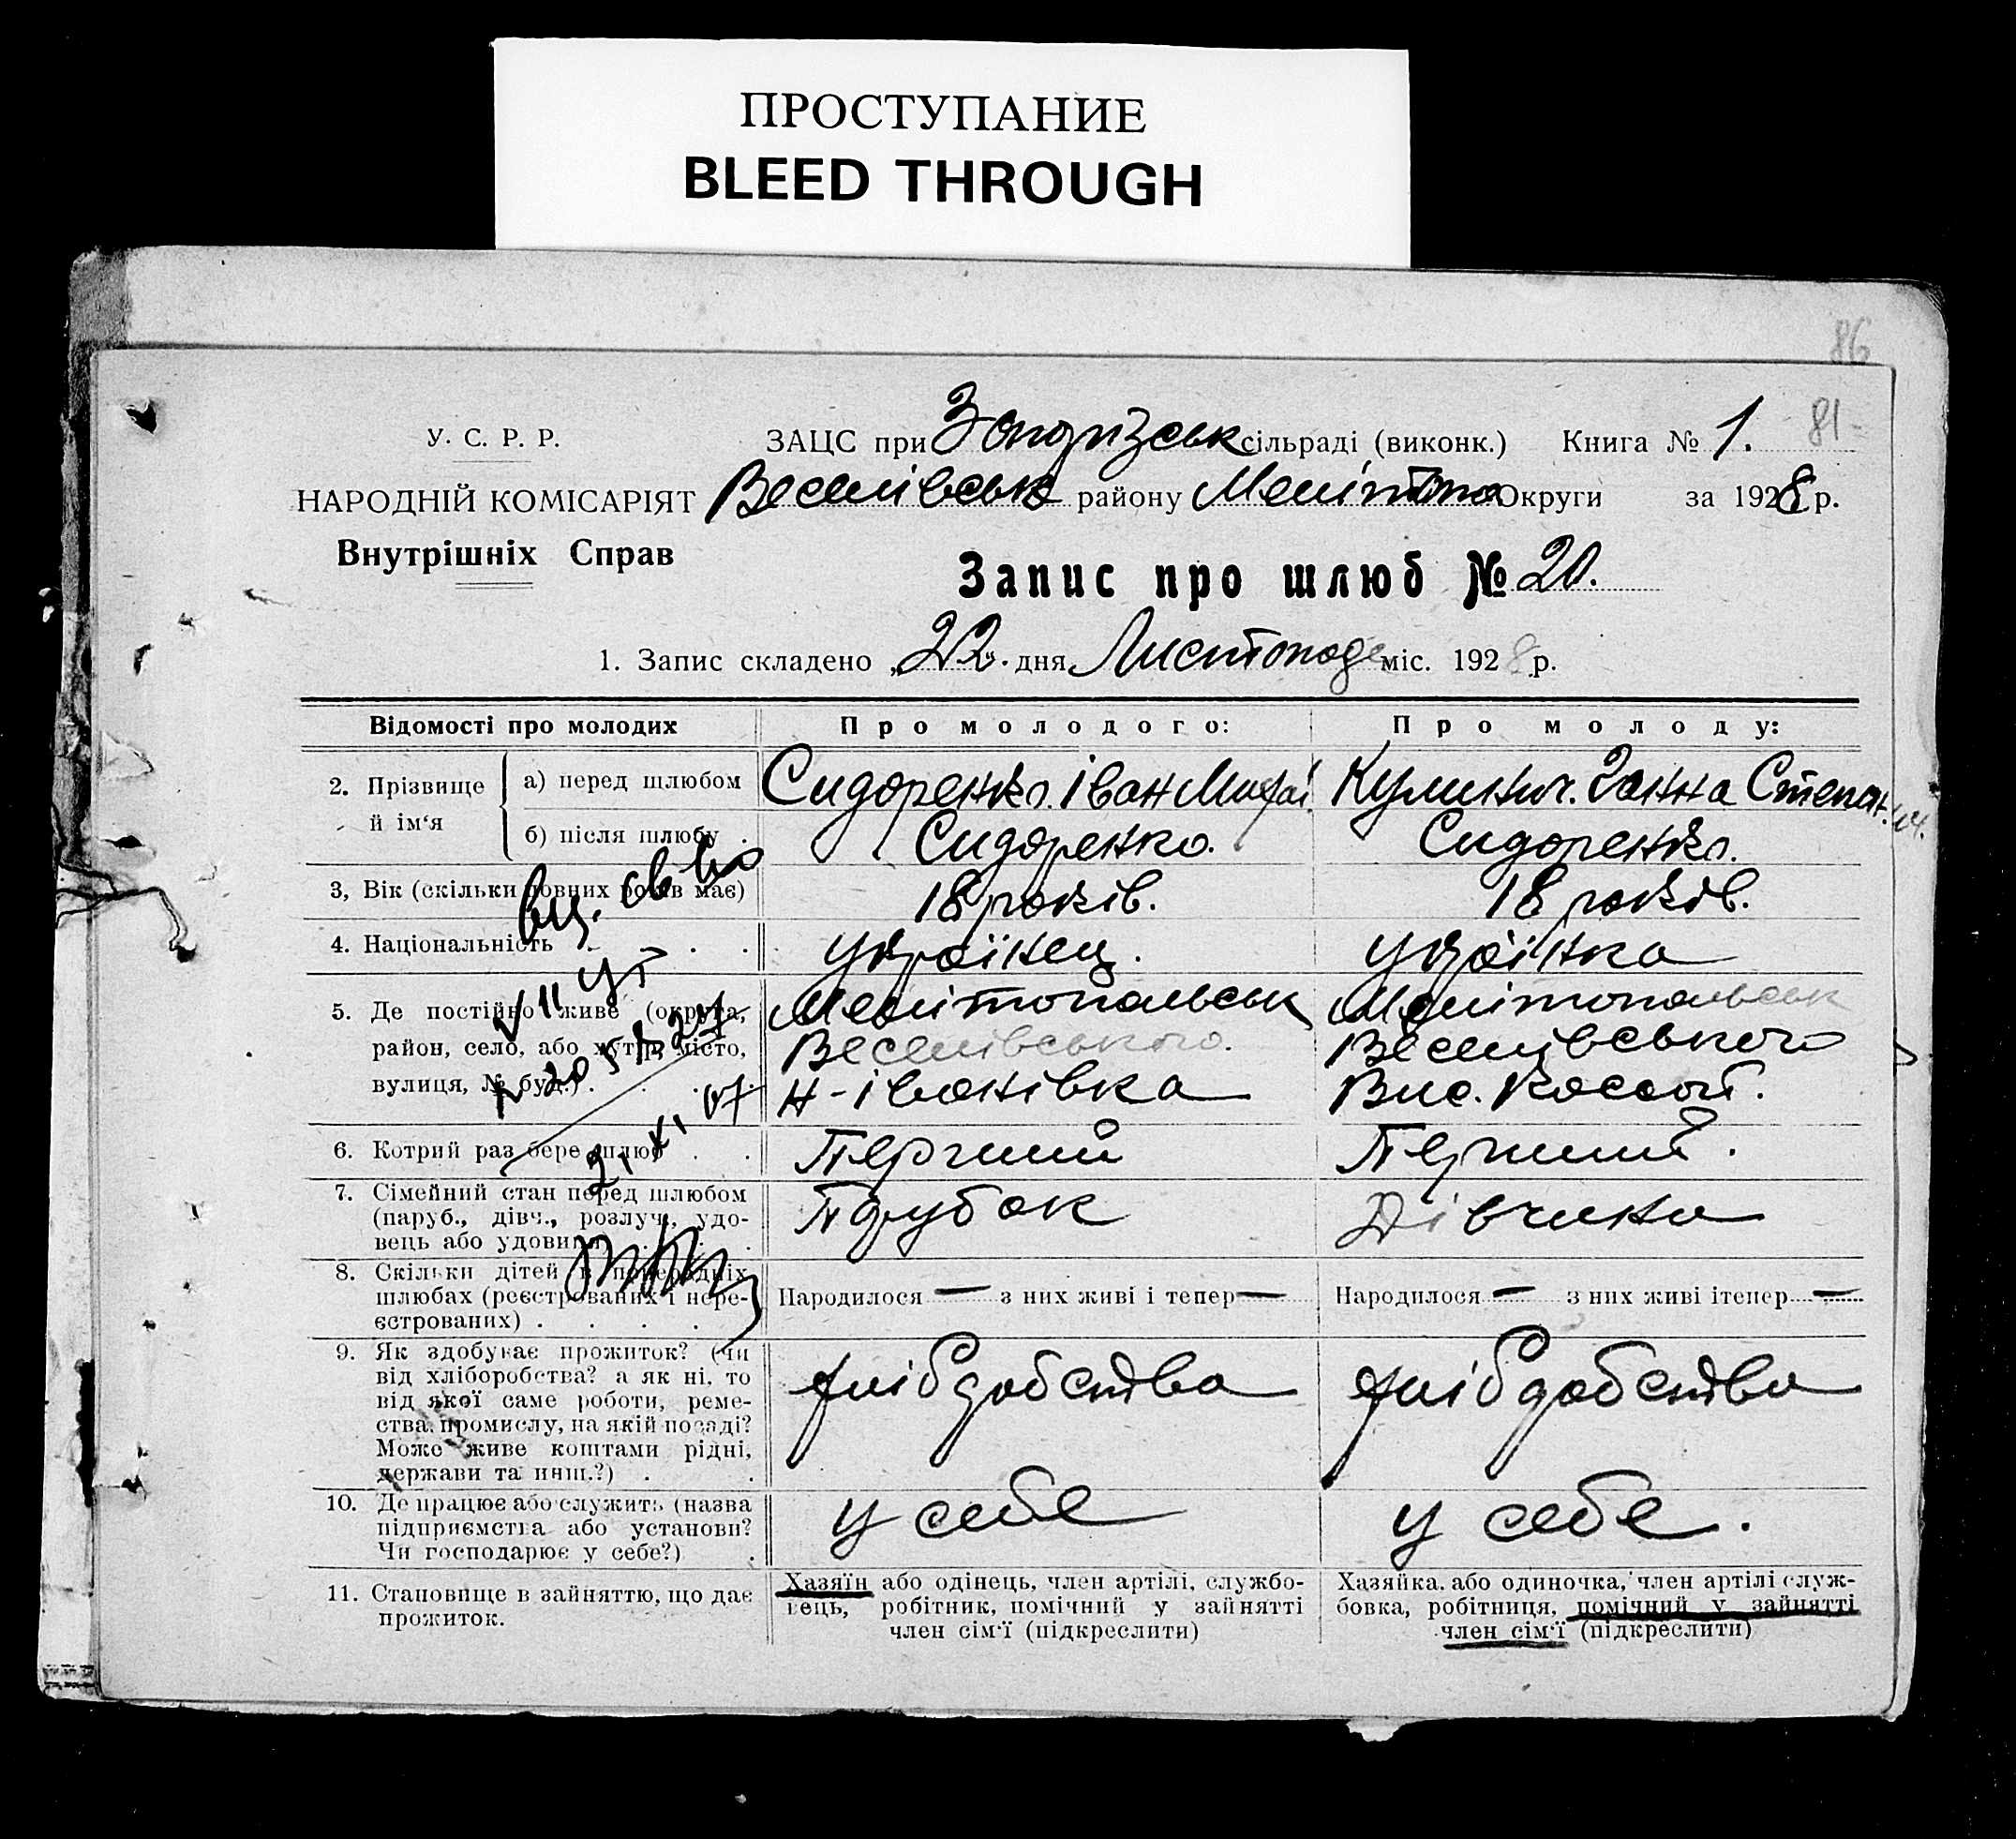 ПРОСТУПАНИЕ
BLEED THROUGH
86
81
У. С. Р. Р.
НАРОДНІЙ КОМІСАРІЯТ
Внутрішніх Справ
ЗАЦС при сільраді (виконк.) Книга № 1.
Веселівськ району Меліто Округи за 1928 р.
Запис про шлюб № 20.
1. Запис складено „22“ дня Листопада міс. 1928 р.
Відомості про молодих Про молодого: Про молоду:
2. Прізвище й ім‘я а) перед шлюбом Сидоренко Іван Михай. Кулинич. Ганна Степан.
б) після шлюбу . Сидоренко. Сидоренко.
3, Вік (скільки повних років має) 18 років. 18 років.
4. Національність Українец. Українка
5. Де постійно живе (округа, район, село, або хутір, місто, вулиця, № буд.)
Мелітопальськ
Веселівського.
Н-Іванівка
Мелітопальськ
Веселівського
6. Котрий раз бере шлюб Перший Перший.
7. Сімейний стан перед шлюбом (паруб., дівч., розлуч., удовець або удовиця) Парубок Дівчина
8. Скільки дітей в попередніх шлюбах (реєстрованих і нереєстрованих) . Народилося — з них живі і тепер — Народилося — з них живі ітепер —
9. Як здобуває прожиток? (Чи
від хліборобства? а як ні, то
від якої саме роботи, реме-
ства, промислу, на якій посаді?
Може живе коштами рідні,
держави та инш.?) .
10. Де працює або служить (назва
підприємства або установи?
Чи господарює у себе?)
у себе
у себе.
11. Становище в зайняттю, що дає
прожиток.
Хазяїн або одінець, член артілі, службо-
вець, робітник, помічний у зайнятті
член сім‘ї (підкреслити)
Хазяйка, або одиночка, член артілі служ-
бовка, робітниця, помічний у зайнятті
член сім‘ї (підкреслити)